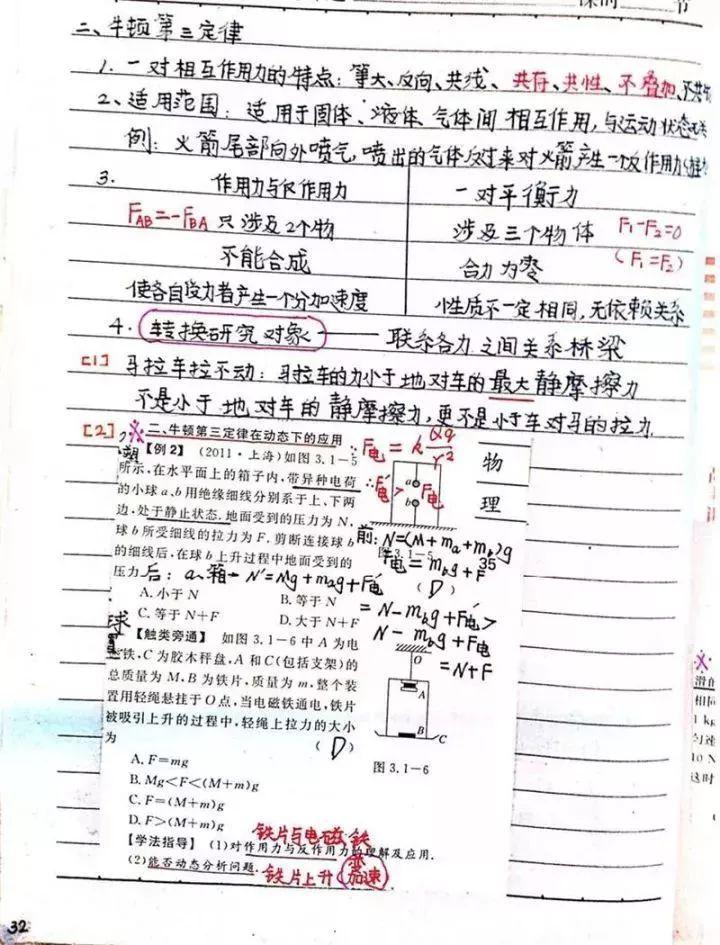 课时 节
二、牛顿第三定律
1. 一对相互作用力的特点：等大、反向、共线、共存、共性、不叠加、
2、适用范围：适用于固体、液体、气体间相互作用，与运动状态
例：火箭尾部向外喷气，喷出的气体反过来对火箭产生一个反作用力
3. 作用力与反作用力 一对平衡力
FAB=-FBA 只涉及2个物 涉及三个物体 F₁-F₂=0
不能合成 合力为零 (F₁=F₂)
使各自受力者产生一个分加速度 性质不一定相同，无依赖关系
4. 转换研究对象 —— 联系各力之间关系桥梁
[1] 马拉车拉不动：马拉车的力小于地对车的最大静摩擦力
不是小于地对车的静摩擦力，更不是小于车对马的拉力
[2] ※二、牛顿第三定律在动态下的应用 ∵F电=k Qq/r²
【例2】 (2011·上海)如图3.1-5 物
所示,在水平面上的箱子内,带异种电荷 ∴F电'>F电 a
的小球a、b用绝缘细线分别系于上、下两 b 理
边,处于静止状态.地面受到的压力为N,
球b所受细线的拉力为F.剪断连接球b 前:N=(M+ma+mb)g
的细线后,在球b上升过程中地面受到的 图3.1-5 35
压力 后：a、箱- N'=Mg+mag+F电' F电=mbg+F (D)
A.小于N B.等于N =N-mbg+F电'>
C.等于N+F D.大于N+F N-mbg+F电
球
【触类旁通】 如图3.1-6中A为电 =N+F
磁铁,C为胶木秤盘,A和C(包括支架)的 O
总质量为M,B为铁片,质量为m,整个装 A
置用轻绳悬挂于O点,当电磁铁通电,铁片
被吸引上升的过程中,轻绳上拉力的大小 B C
为 (D)
A.F=mg 图3.1-6
B.Mg<F<(M+m)g
C.F=(M+m)g
D.F>(M+m)g
铁片与电磁铁
【学法指导】 (1)对作用力与反作用力的理解及应用.
(2)能否动态分析问题. 铁片上升 变加速
32
相同
1 kg
匀速
10 N
这时